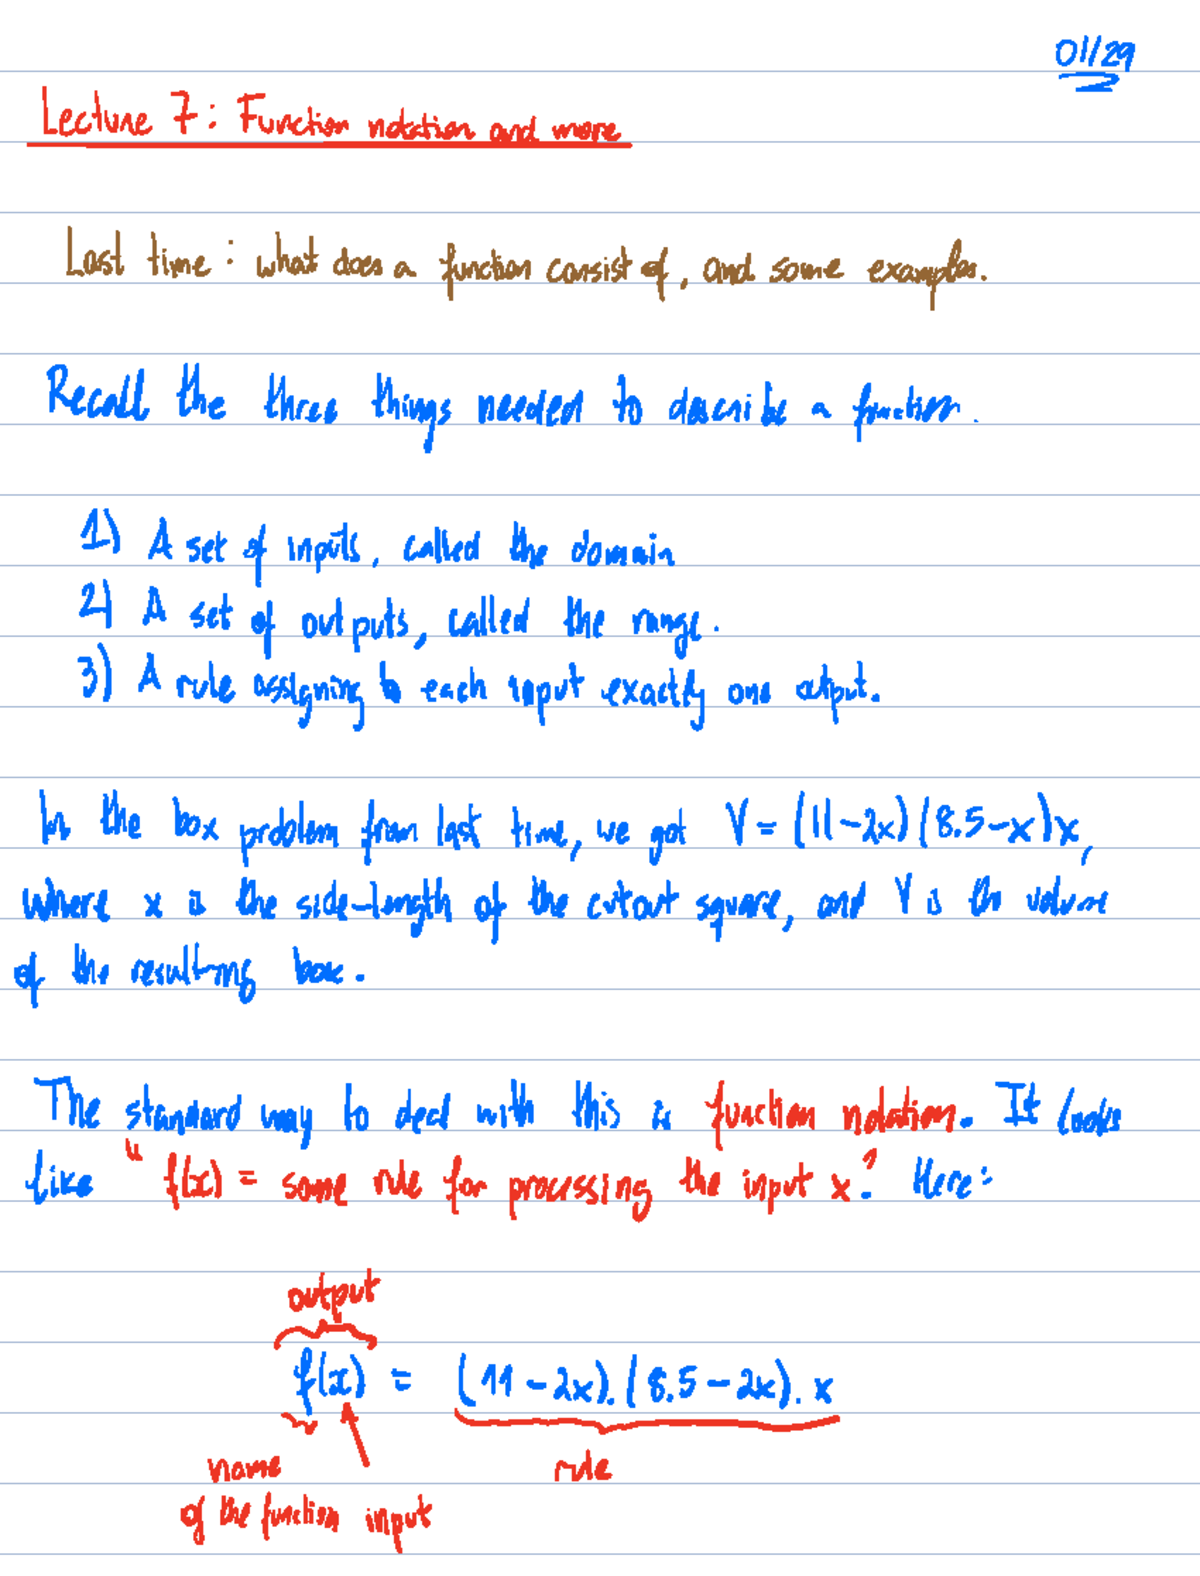 01/29
Lecture 7: Function notation and more
Last time: what does a function consist of, and some examples.
Recall the three things needed to describe a function.
1) A set of inputs, called the domain
2) A set of outputs, called the range.
3) A rule assigning to each input exactly one output.
In the box problem from last time, we got V = (11-2x)(8.5-x)x,
where x is the side-length of the cutout square, and V is the volume
of the resulting box.
The standard way to deal with this is function notation. It looks
like "f(x) = some rule for processing the input x". Here:
output
f(x) = (11-2x).(8.5-2x).x
name rule
of the function input